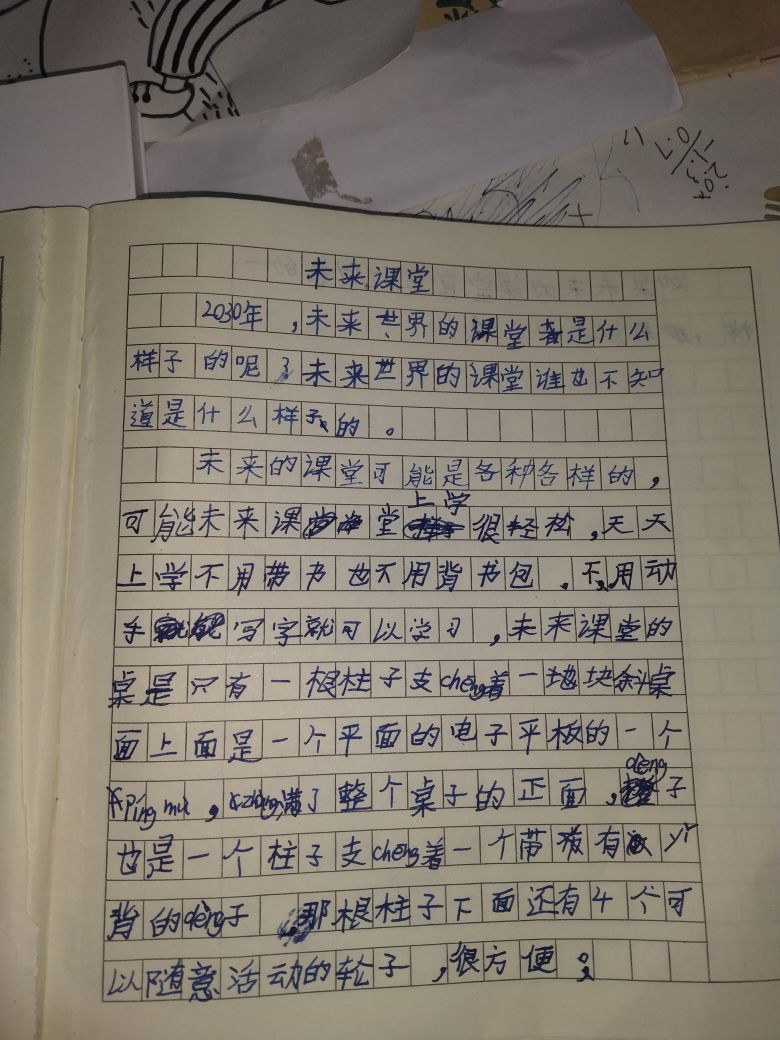 未来课堂
2030年，未来世界的课堂是什么
样子的呢？未来世界的课堂谁也不知
道是什么样子的。
未来的课堂可能是各种各样的，
上学
可能未来课堂很轻松，天天
上学不用带书也不用背书包，不用动
手写字就可以学习，未来课堂的
桌是只有一根柱子支cheng着一块斜桌
面上面是一个平面的电子平板的一个
ping mu，满了整个桌子的正面，deng子
也是一个柱子支cheng着一个带有yi
背的deng子 那根柱子下面还有4个可
以随意活动的轮子，很方便。